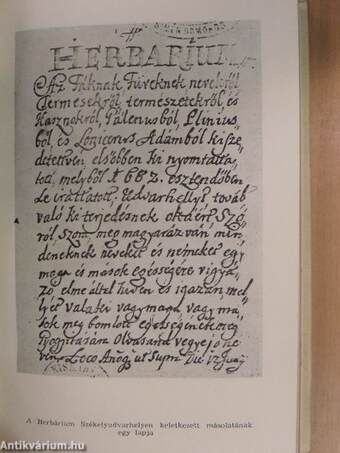 HERBARIUM
Az Fáknak Füveknek nevekről
Termesekről, termeszetekről, és
Hasznokról, Galenusból, Plinius
ból, és Lonicerus Adámból ki sze
detettven, elsöbben ki nyomtatta
tott, melyböl 1682. esztendöben
le irattatott, Udvarhellyt, továb
való ki terjedésnek okáért Szó
ról, Szóra meg magyarázván min
deneknek neveket és németet egy
maga és mások egésségére vigyá
zó elme által hiven és igazán, mel
lyet valaki vagy maga vagy má
sok meg bomlott egésségének
Olvasand vegye jó ne
ven. Loco Anoq ut Supra Die
A Herbárium Székelyudvarhelyen keletkezett másolatának
egy lapja
Antikvárium.hu